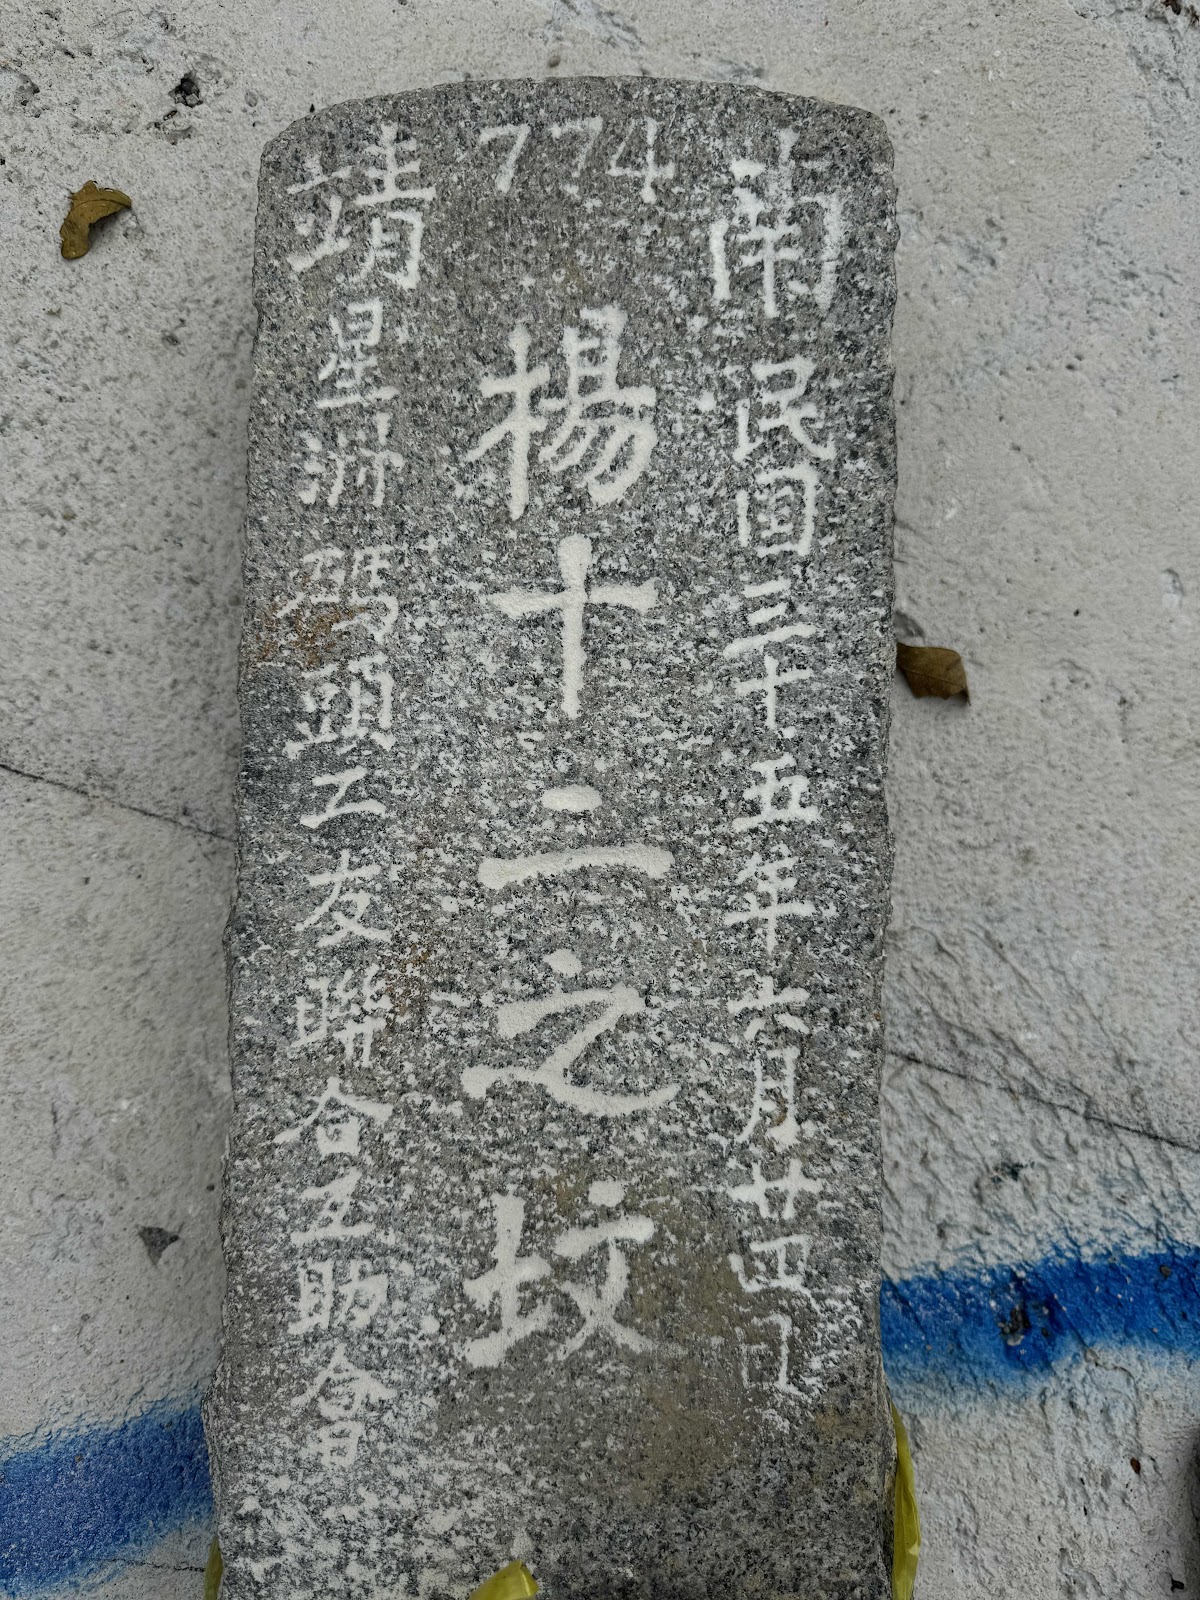 774
南民国三十五年六月廿四日
楊十二之坟
靖星洲碼頭工友聯合互助會